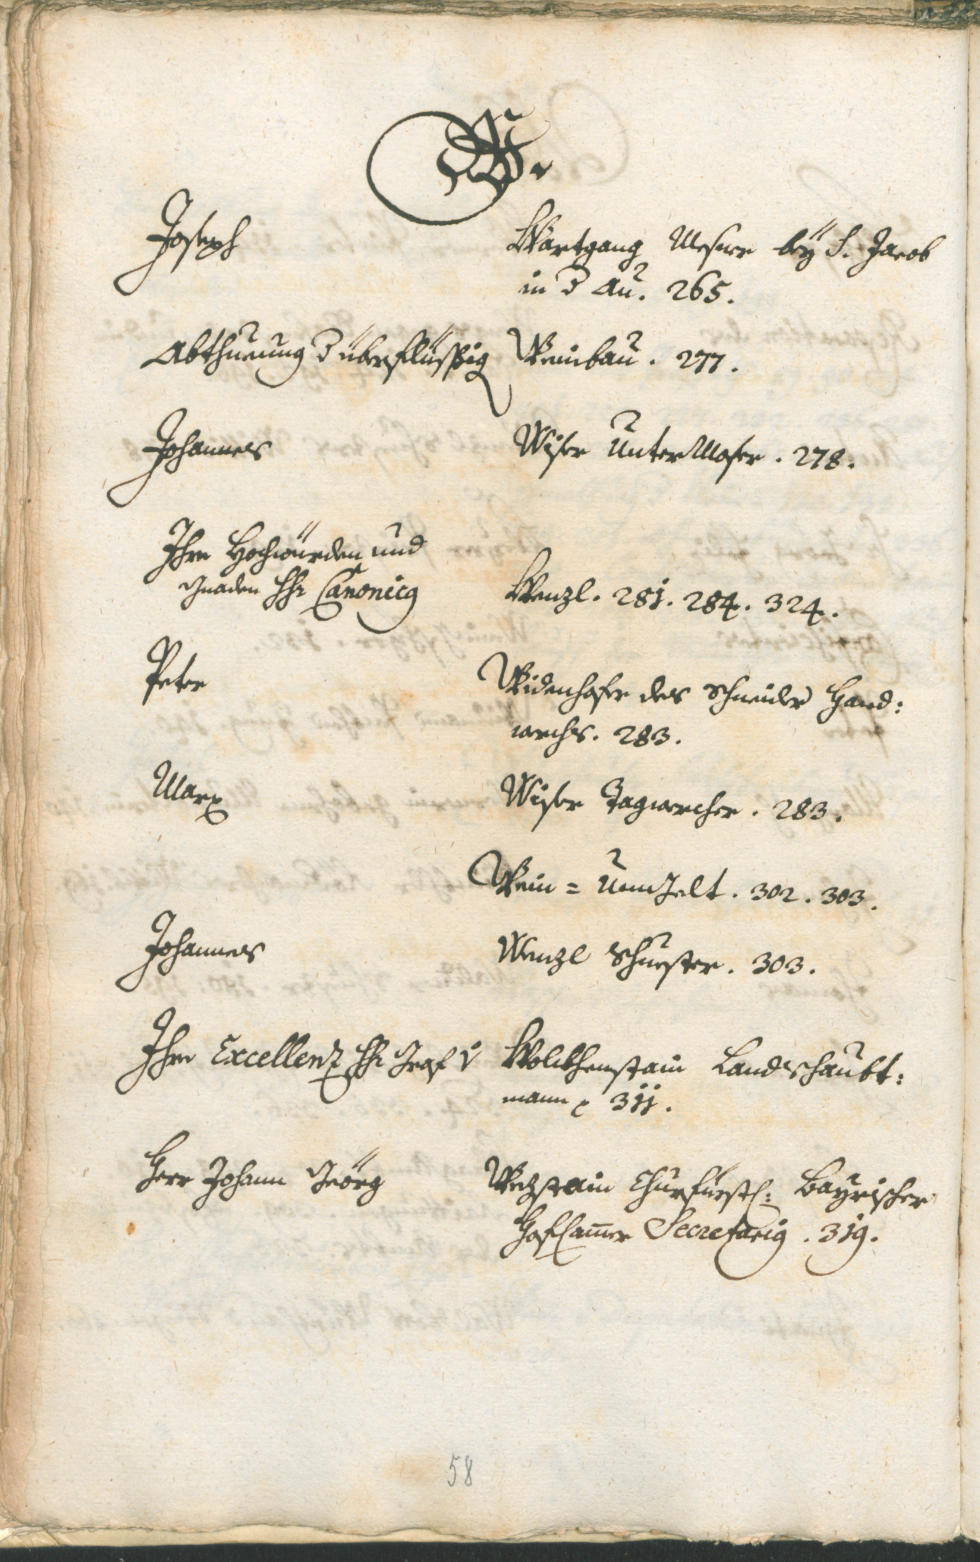 W.
Joseph Wartgang Mesner bey S. Jacob
in d Au. 265.
Abthueung d überflüssig Weinbau. 277.
Johannes Wiser Untermoser. 278.
Ihro Hochwürden und
Gnaden Hr Canonicg Wenzl. 281. 284. 324.
Peter Widenhofer des Schneider Hand:
werchs. 283.
Marx Wiser Tagwercher. 283.
Wein = Umgelt. 302. 303.
Johannes Wenzl Schuester. 303.
Ihro Excellenz Hr Graf v Wolkhenstain Landtshaubt:
mann 311.
Herr Johann Geörg Wezstain Churfürstl: Bayrischer
Hofcam̄er Secretarig. 319.
58